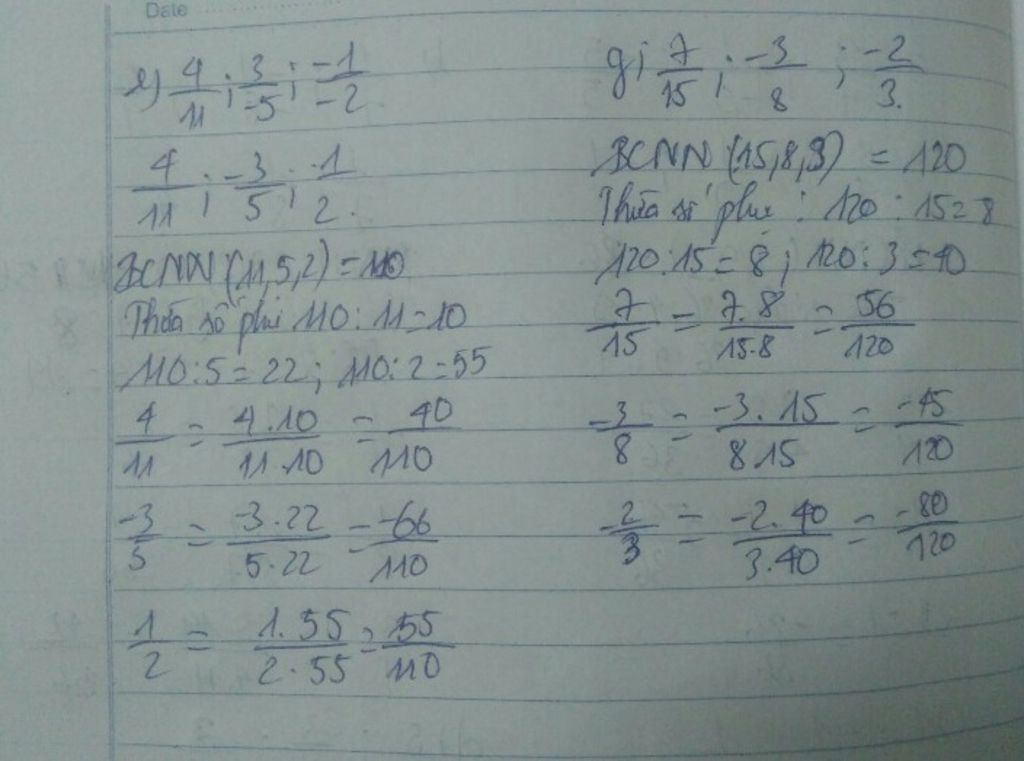 Date
e) 4/11 ; 3/-5 ; -1/-2
4/11 ; -3/5 ; 1/2.
BCNN (11,5,2) = 110
Thừa số phụ 110 : 11 = 10
110 : 5 = 22 ; 110 : 2 = 55
4/11 = 4.10/11.10 = 40/110
-3/5 = -3.22/5.22 = -66/110
1/2 = 1.55/2.55 = 55/110
g; 7/15 ; -3/8 ; -2/3.
BCNN (15,8,3) = 120
Thừa số phụ : 120 : 15 = 8
120 : 15 = 8 ; 120 : 3 = 40
7/15 = 7.8/15.8 = 56/120
-3/8 = -3.15/8.15 = -45/120
-2/3 = -2.40/3.40 = -80/120